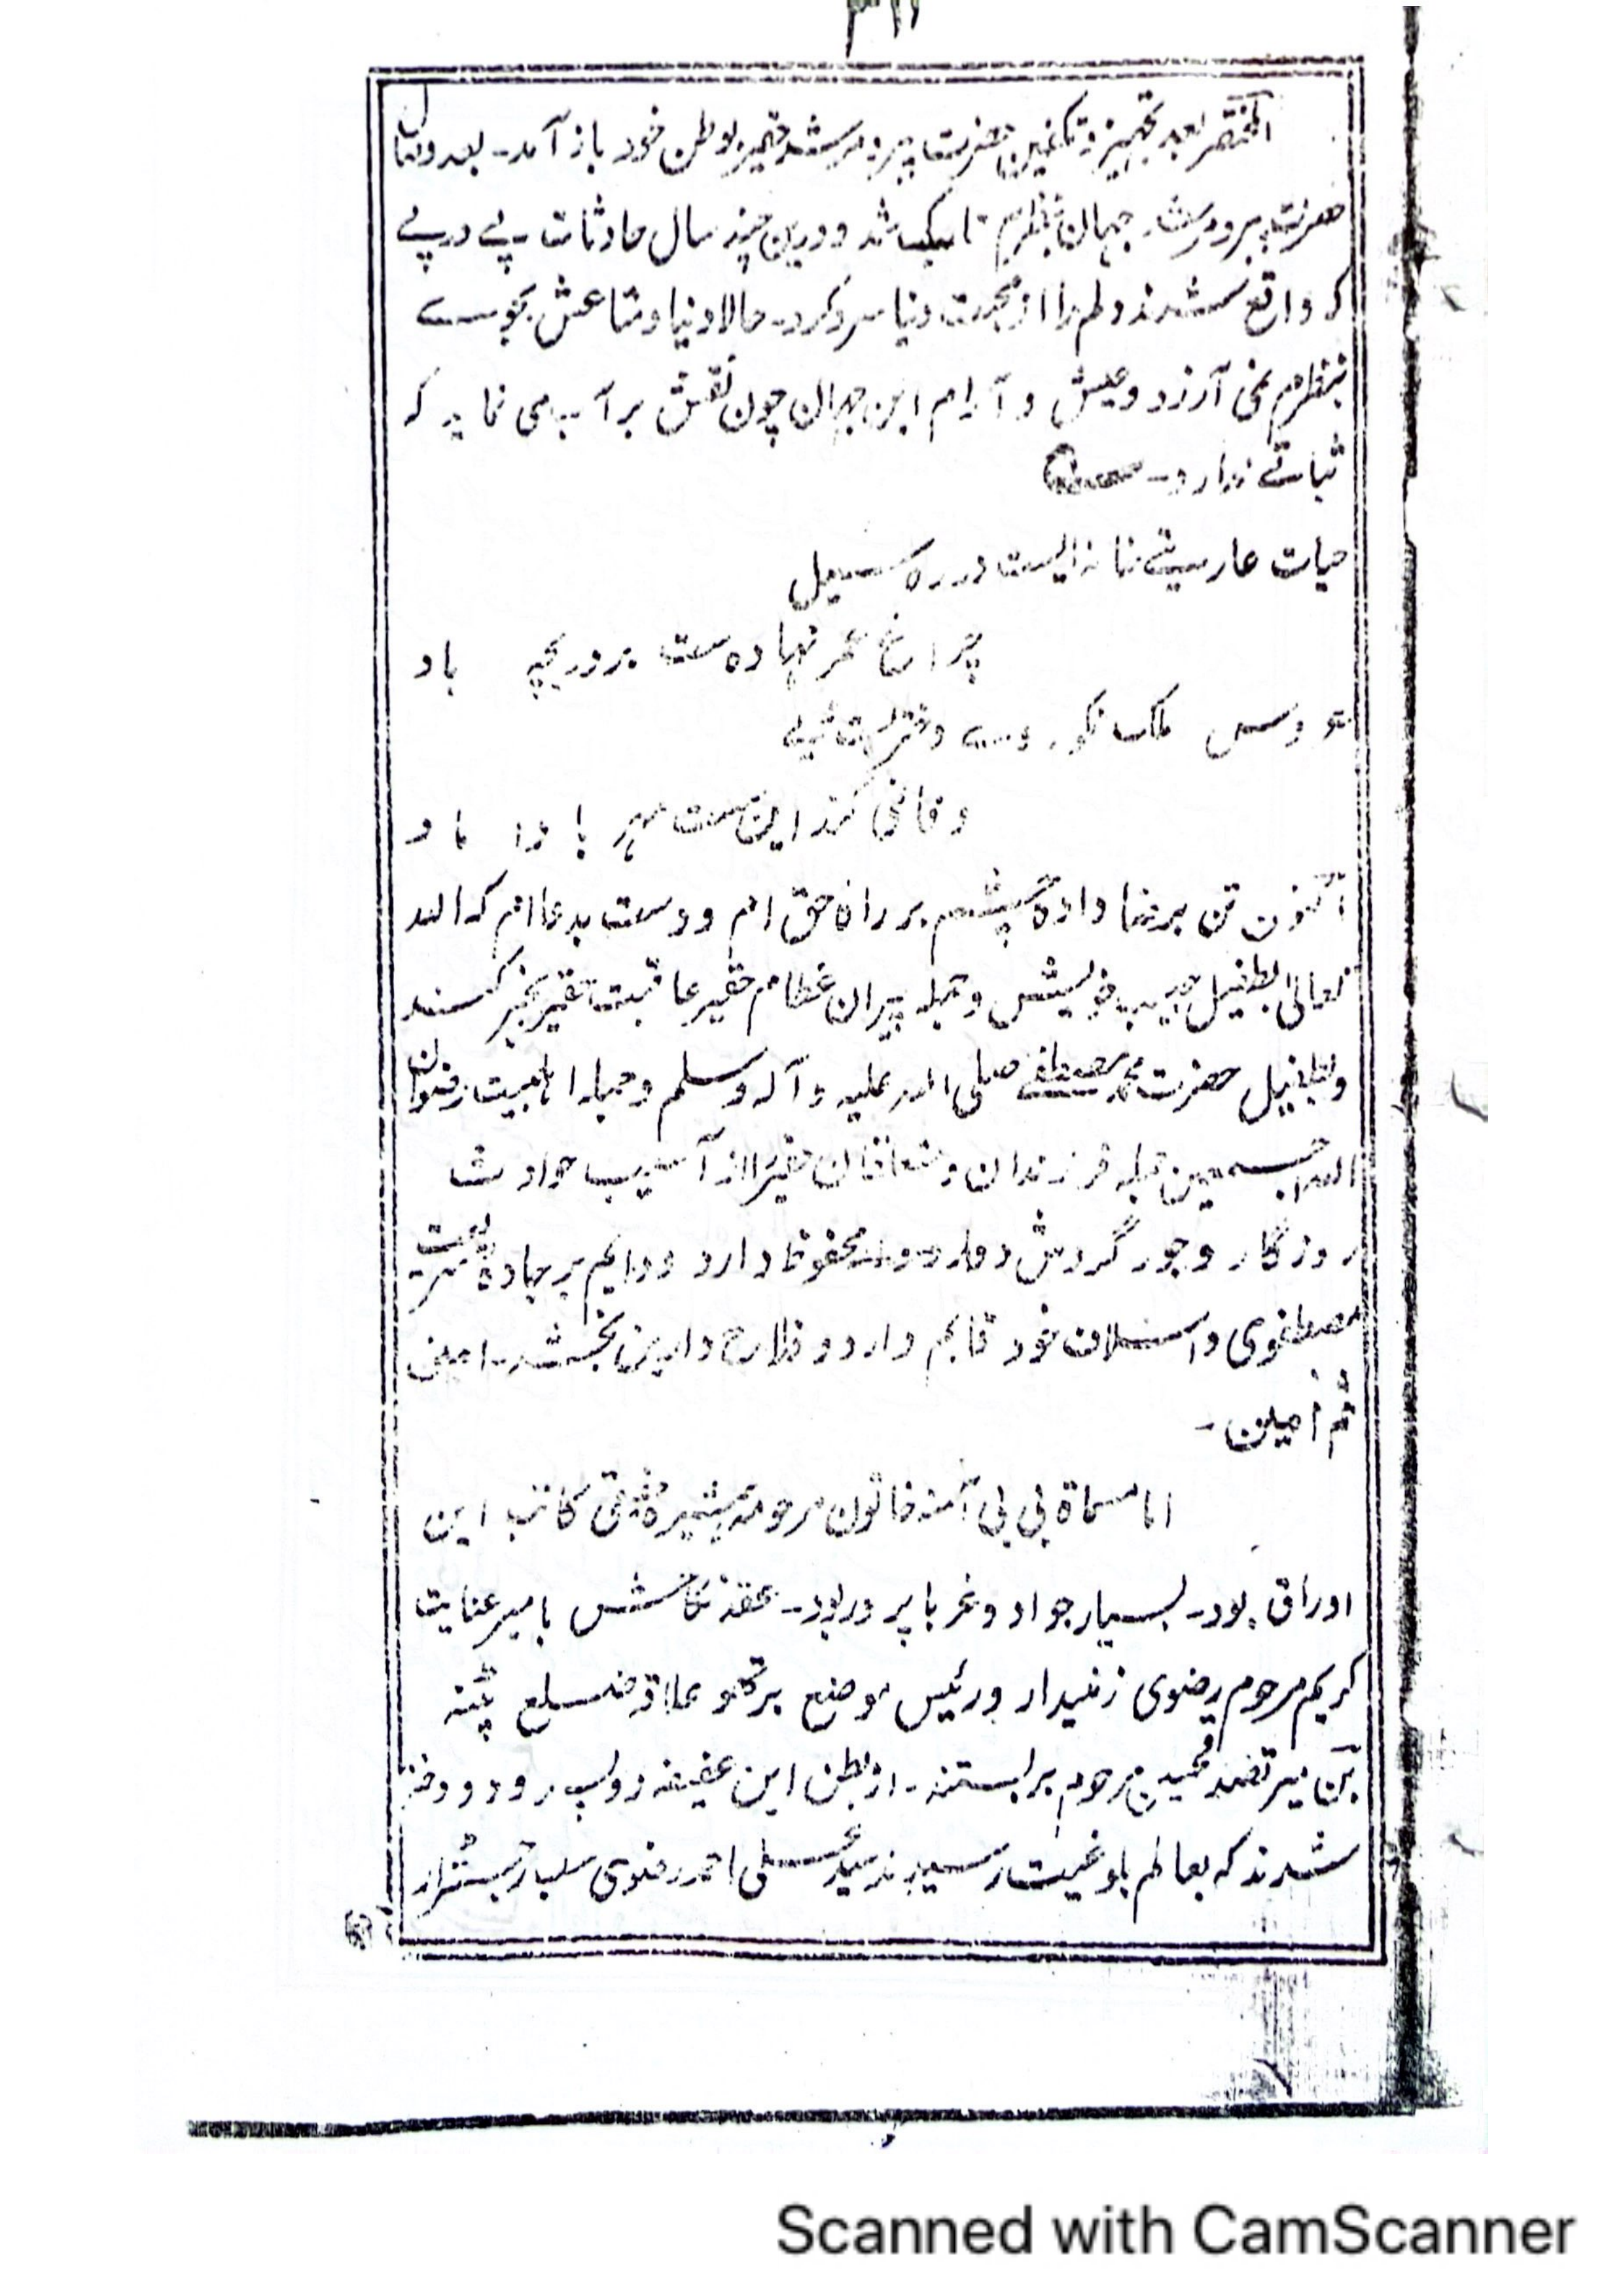 المختصر بعد تجهیز و تکفین حضرت پیر و مرشد حقیر بوطن خود باز آمد۔ بعد وصال
حضرت پیر و مرشد جهان بنظرم تاریک شد و درین چند سال حادثات پی در پے
که واقع شدند دلم را از محبت دنیا سرد کرد۔ حالا دنیا و متاعش بجوے
بنظرم نمی آرزد و عیش و آرام این جهان چون نقش بر آب می نماید که
ثباتے ندارد۔
حیات عاریتے خانه ایست در ره سیل
چراغ عمر نهاده ست بر دریچه باد
عروس ملک نکو روے دختریست ولے
وفا نمی کند این سست مهر با داماد
اکنون تن برضا داده چشم بر راه حق ام و دست بدعا ام که الله
تعالیٰ بطفیل حبیب خویش و جمله پیران عظام حقیر عاقبت حقیر بخیر کند
و بطفیل حضرت محمد مصطفے صلی الله علیه و آله وسلم و جمله اهلبیت رضوان
الله اجمعین جمله فرزندان و متعلقان حقیر را از آسیب حوادث
روزگار و جور گردش دوار محفوظ دارد و دایم بر جاده شریعت
مصطفوی و اسلاف خود قایم دارد و فلاح دارین بخشد۔ امین
ثم آمین۔
اما مسماة بی بی آمنه خاتون مرحومه همشیره حقیقی کاتب این
اوراق بود۔ بسیار جواد و غربا پرور بود۔ عقد نکاحش با میر عنایت
کریم مرحوم رضوی زمیندار و رئیس موضع علاقه ضلع پٹنه
بن میر تصدق حسین مرحوم بر بستند۔ از بطن این عفیفه دو پسر و دو دختر
شدند که بعالم بلوغیت رسیدند سید علی احمد رضوی سب رجسٹرار
Scanned with CamScanner